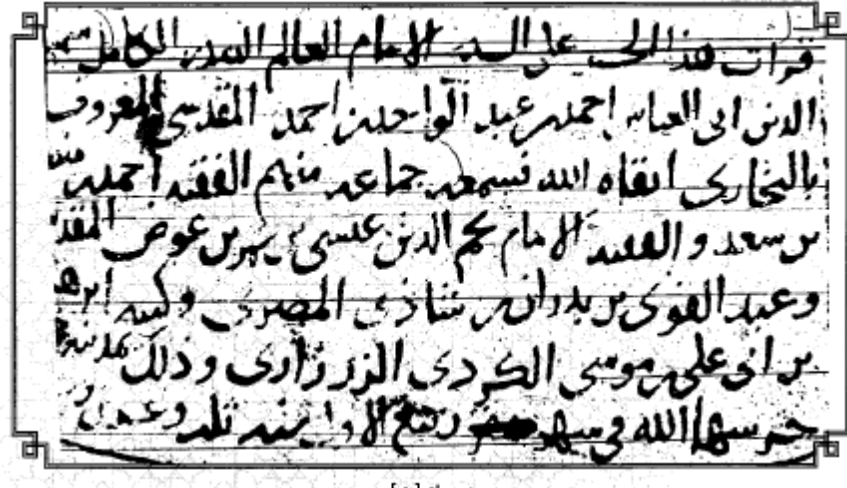 قرات هذا الجزء على السيد الامام العالم الصدر الكامل شمس
الدين ابى العباس احمد بن عبد الواحد بن احمد المقدسي المعروف
بالبخارى ابقاه الله فسمعه جماعه منهم الفقيه احمد بن
بن سعد و الفقيه الامام نجم الدين عيسى بن بن عوض المقدسى
وعبد القوى بن بدران بن المصرى وكتبه ابرهيم
بن ابى على بن موسى الكردى الزرزارى وذلك بمدينة
حرسها الله فى شهر ربيع الاول سنه ثلث وعشرين